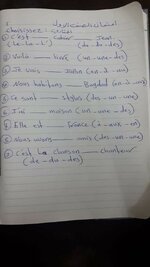 Choisissez :
① C'est ___ cahier ___ Jean.
(Le - La - L') (de - du - des)
② Voila ___ livre (un - une - des)
③ Je vais ___ (en - à - au)
④ Nous habitons ___ Bagdad (en - à - au)
⑤ Ce sont ___ stylos (des - un - une)
⑥ J'ai ___ maison (un - une - des)
⑦ Elle est ___ France (à - aux - en)
⑧ Nous avons ___ amis (des - un - une)
⑨ C'est la chanson ___ chanteur
(de - du - des)